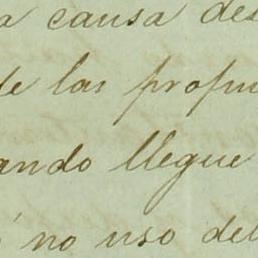 a causa des
de las propu
ando llegue
no uso del